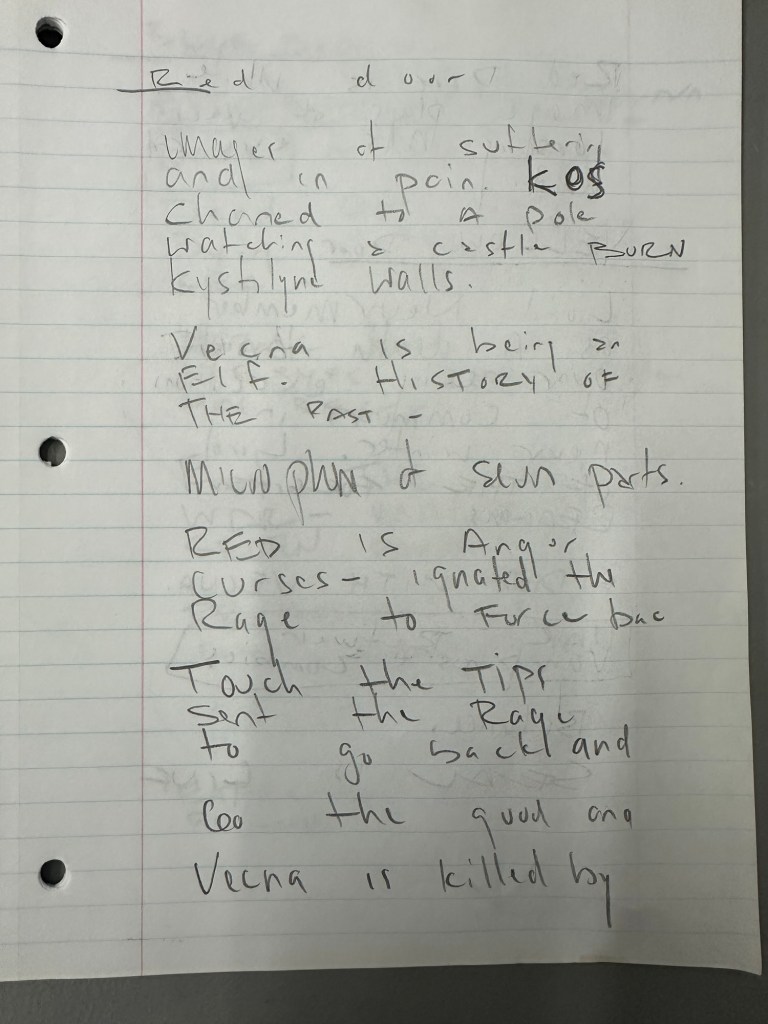 Red door
images of suffering
and in pain. Kos
Chaned to A pole
watching a castle BURN
kystlyne walls.
Vecna is being an
Elf. HISTORY OF
THE PAST -
Microphn of parts.
RED IS Angor
curses- ignated the
Rage to Force bac
Touch the Tips
sent the Rage
to go back and
the good ana
Vecna is killed by